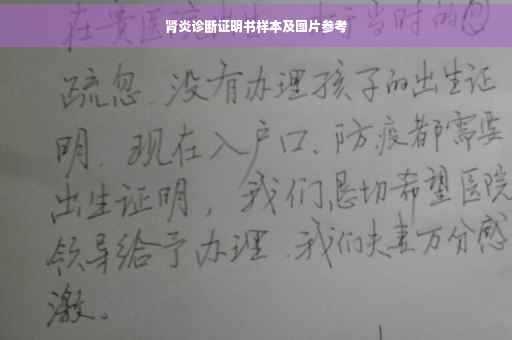 肾炎诊断证明书样本及图片参考
在贵医院出生，由于当时的
疏忽，没有办理孩子的出生证
明，现在入户口、防疫都需要
出生证明，我们恳切希望医院
领导给予办理，我们夫妻万分感
激。